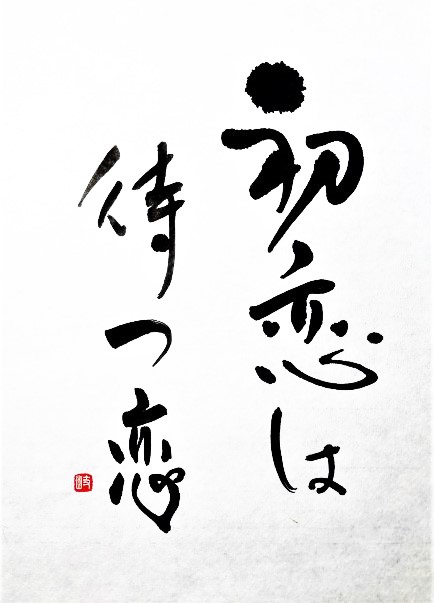 初恋は
待つ恋